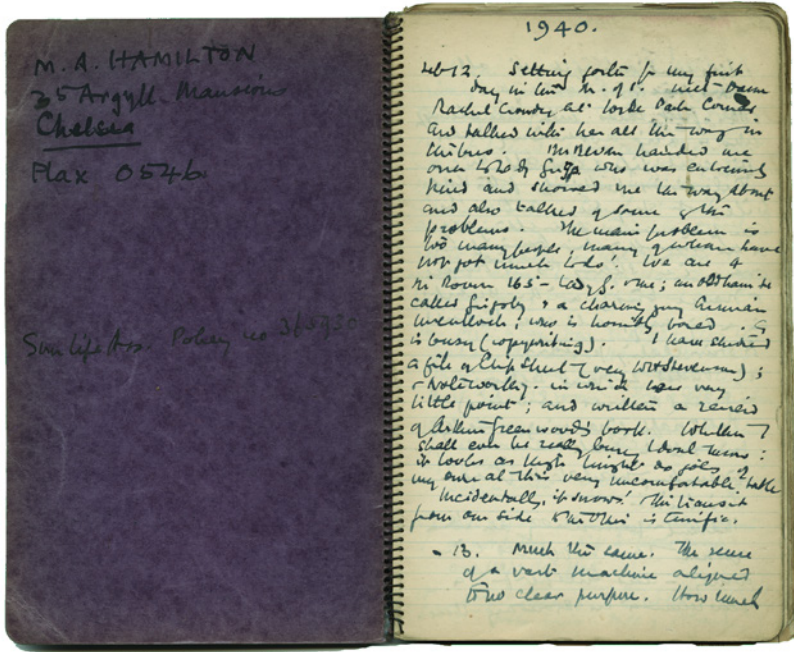 M. A. HAMILTON
35 Argyll Mansions
Chelsea
Flax 0546
Sun Life Ass. Policy no
1940.
Feb 12. Setting forth for my first
day in the M. of I. met Dame
Rachel Crowdy at Hyde Park Corner
and talked with her all the way in
the bus. handed me
over to Lady Grigg who was extremely
kind and showed me the way about
and also talked of some of the
problems. The main problem is
too many people, many of whom have
not got much to do! We are 4
in Room 165 - Lady G. me; an old
called Grigsby & a charming
who is horribly bored. G
is busy (copywriting). I have studied
a file of Clip Sheet (very
Noteworthy. in which see very
little point; and written a
of Arthur Greenwood's book. Whether I
shall ever be really busy I don't know:
it looks as tho' I might do jobs of
my own at this very uncomfortable table
Incidentally, it snows! The transit
from one side to the other is terrific.
- 13. Much the same. The sense
of a vast machine aligned
to no clear purpose. How much